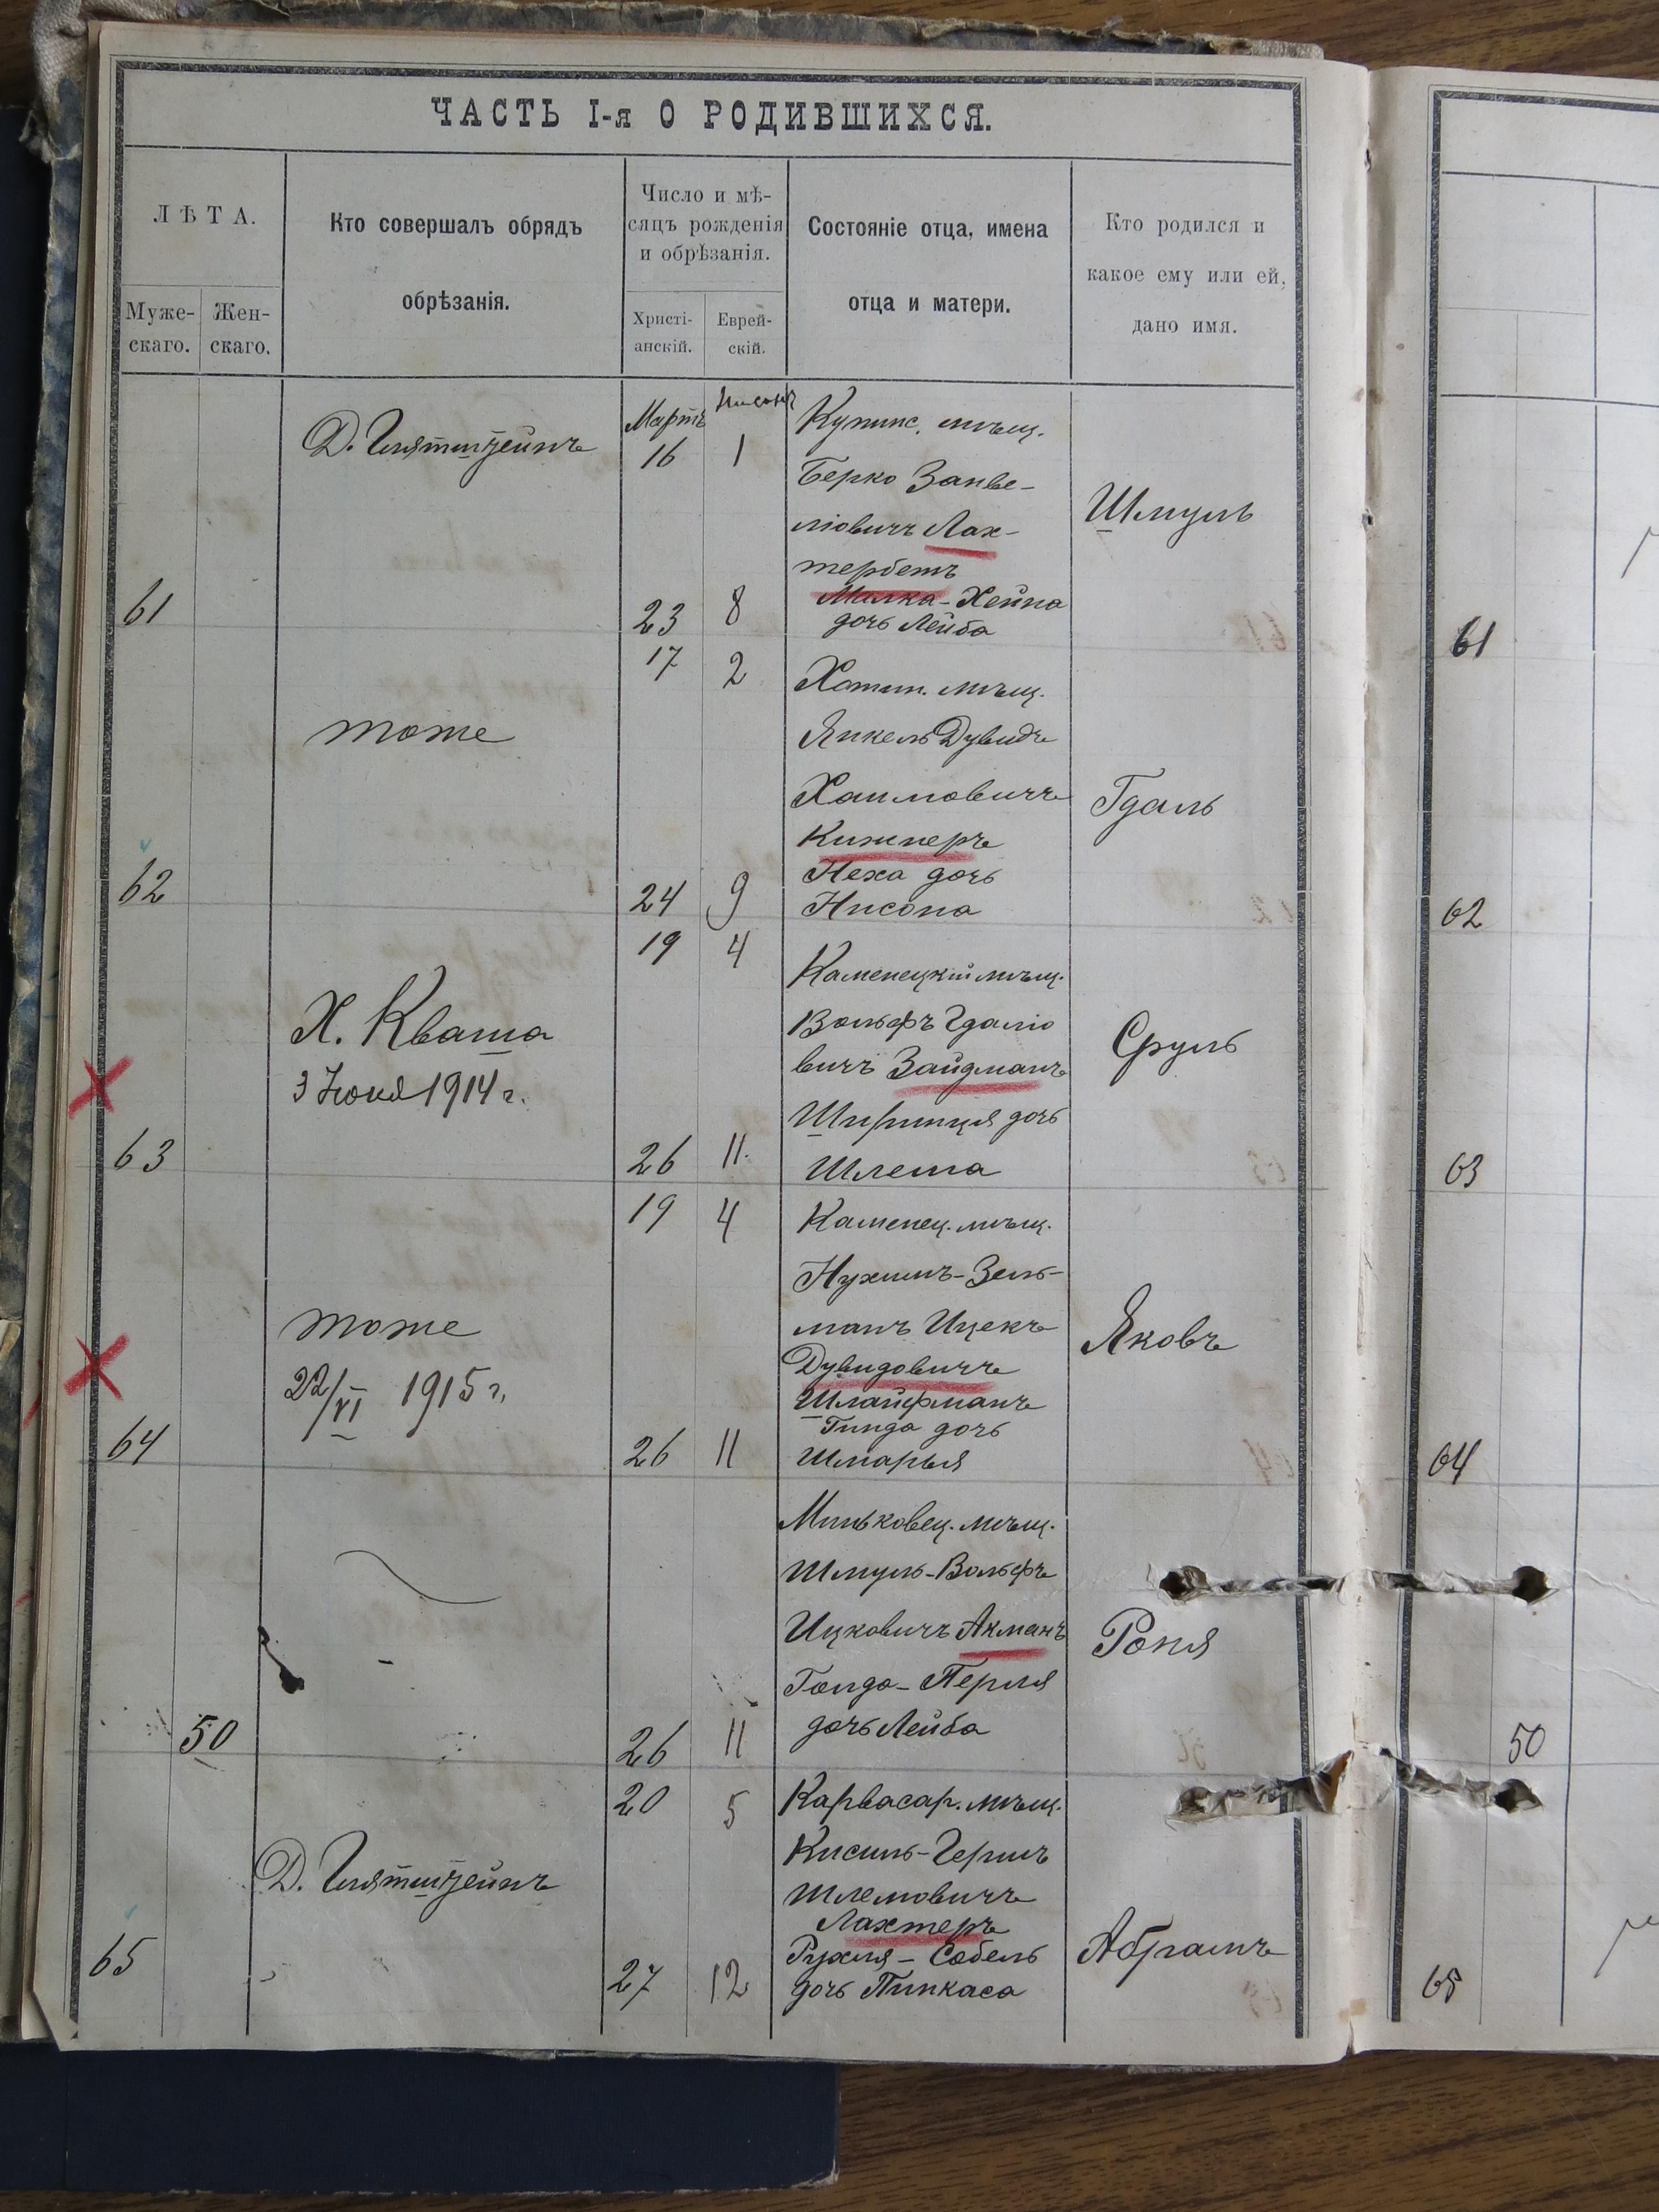 ЧАСТЬ I-я О РОДИВШИХСЯ.
ЛѢТА.
Муже-
скаго.
Жен-
скаго.
Кто совершалъ обрядъ
обрѣзанія.
Число и мѣ-
сяцъ рожденія
и обрѣзанія.
Христі-
анскій.
Еврей-
скій.
Состояніе отца, имена
отца и матери.
Кто родился и
какое ему или ей,
дано имя.
Мартъ
Нисонъ
16
1
Д.
Купинс. мѣщ.
Берко Занве-
ліовичъ Лах-
тербетъ
Малка-Хейна
дочь Лейба
Шмуль
61
23
8
61
17
2
тоже
Хотин. мѣщ.
Янкель Дувидъ
Хаимовичъ
Кижнеръ
Неха дочь
Нисона
Гдаль
62
24
9
62
19
4
Х. Кваша
3 Іюня 1914 г.
Каменецкій мѣщ.
Вольфъ Гдаліо
вичъ Зайдманъ
Ширинця дочь
Шлема
Сруль
63
26
11.
63
19
4
тоже
22/VI 1915 г.
Каменец. мѣщ.
Нухимъ-Зель-
манъ Ицекъ
Дувидовичъ
Шлайфманъ
Гинда дочь
Шмарья
Яковъ
64
26
11
64
Миньковец. мѣщ.
Шмуль-Вольфъ
Ицковичъ Акманъ
Голда-Перля
дочь Лейба
Роня
50
26
11
50
20
5
Д.
Карвасар. мѣщ.
Кисиль-Гершъ
Шлемовичъ
Лахтеръ
Рухля-Собель
дочь Пинкаса
Абрамъ
65
27
12
65